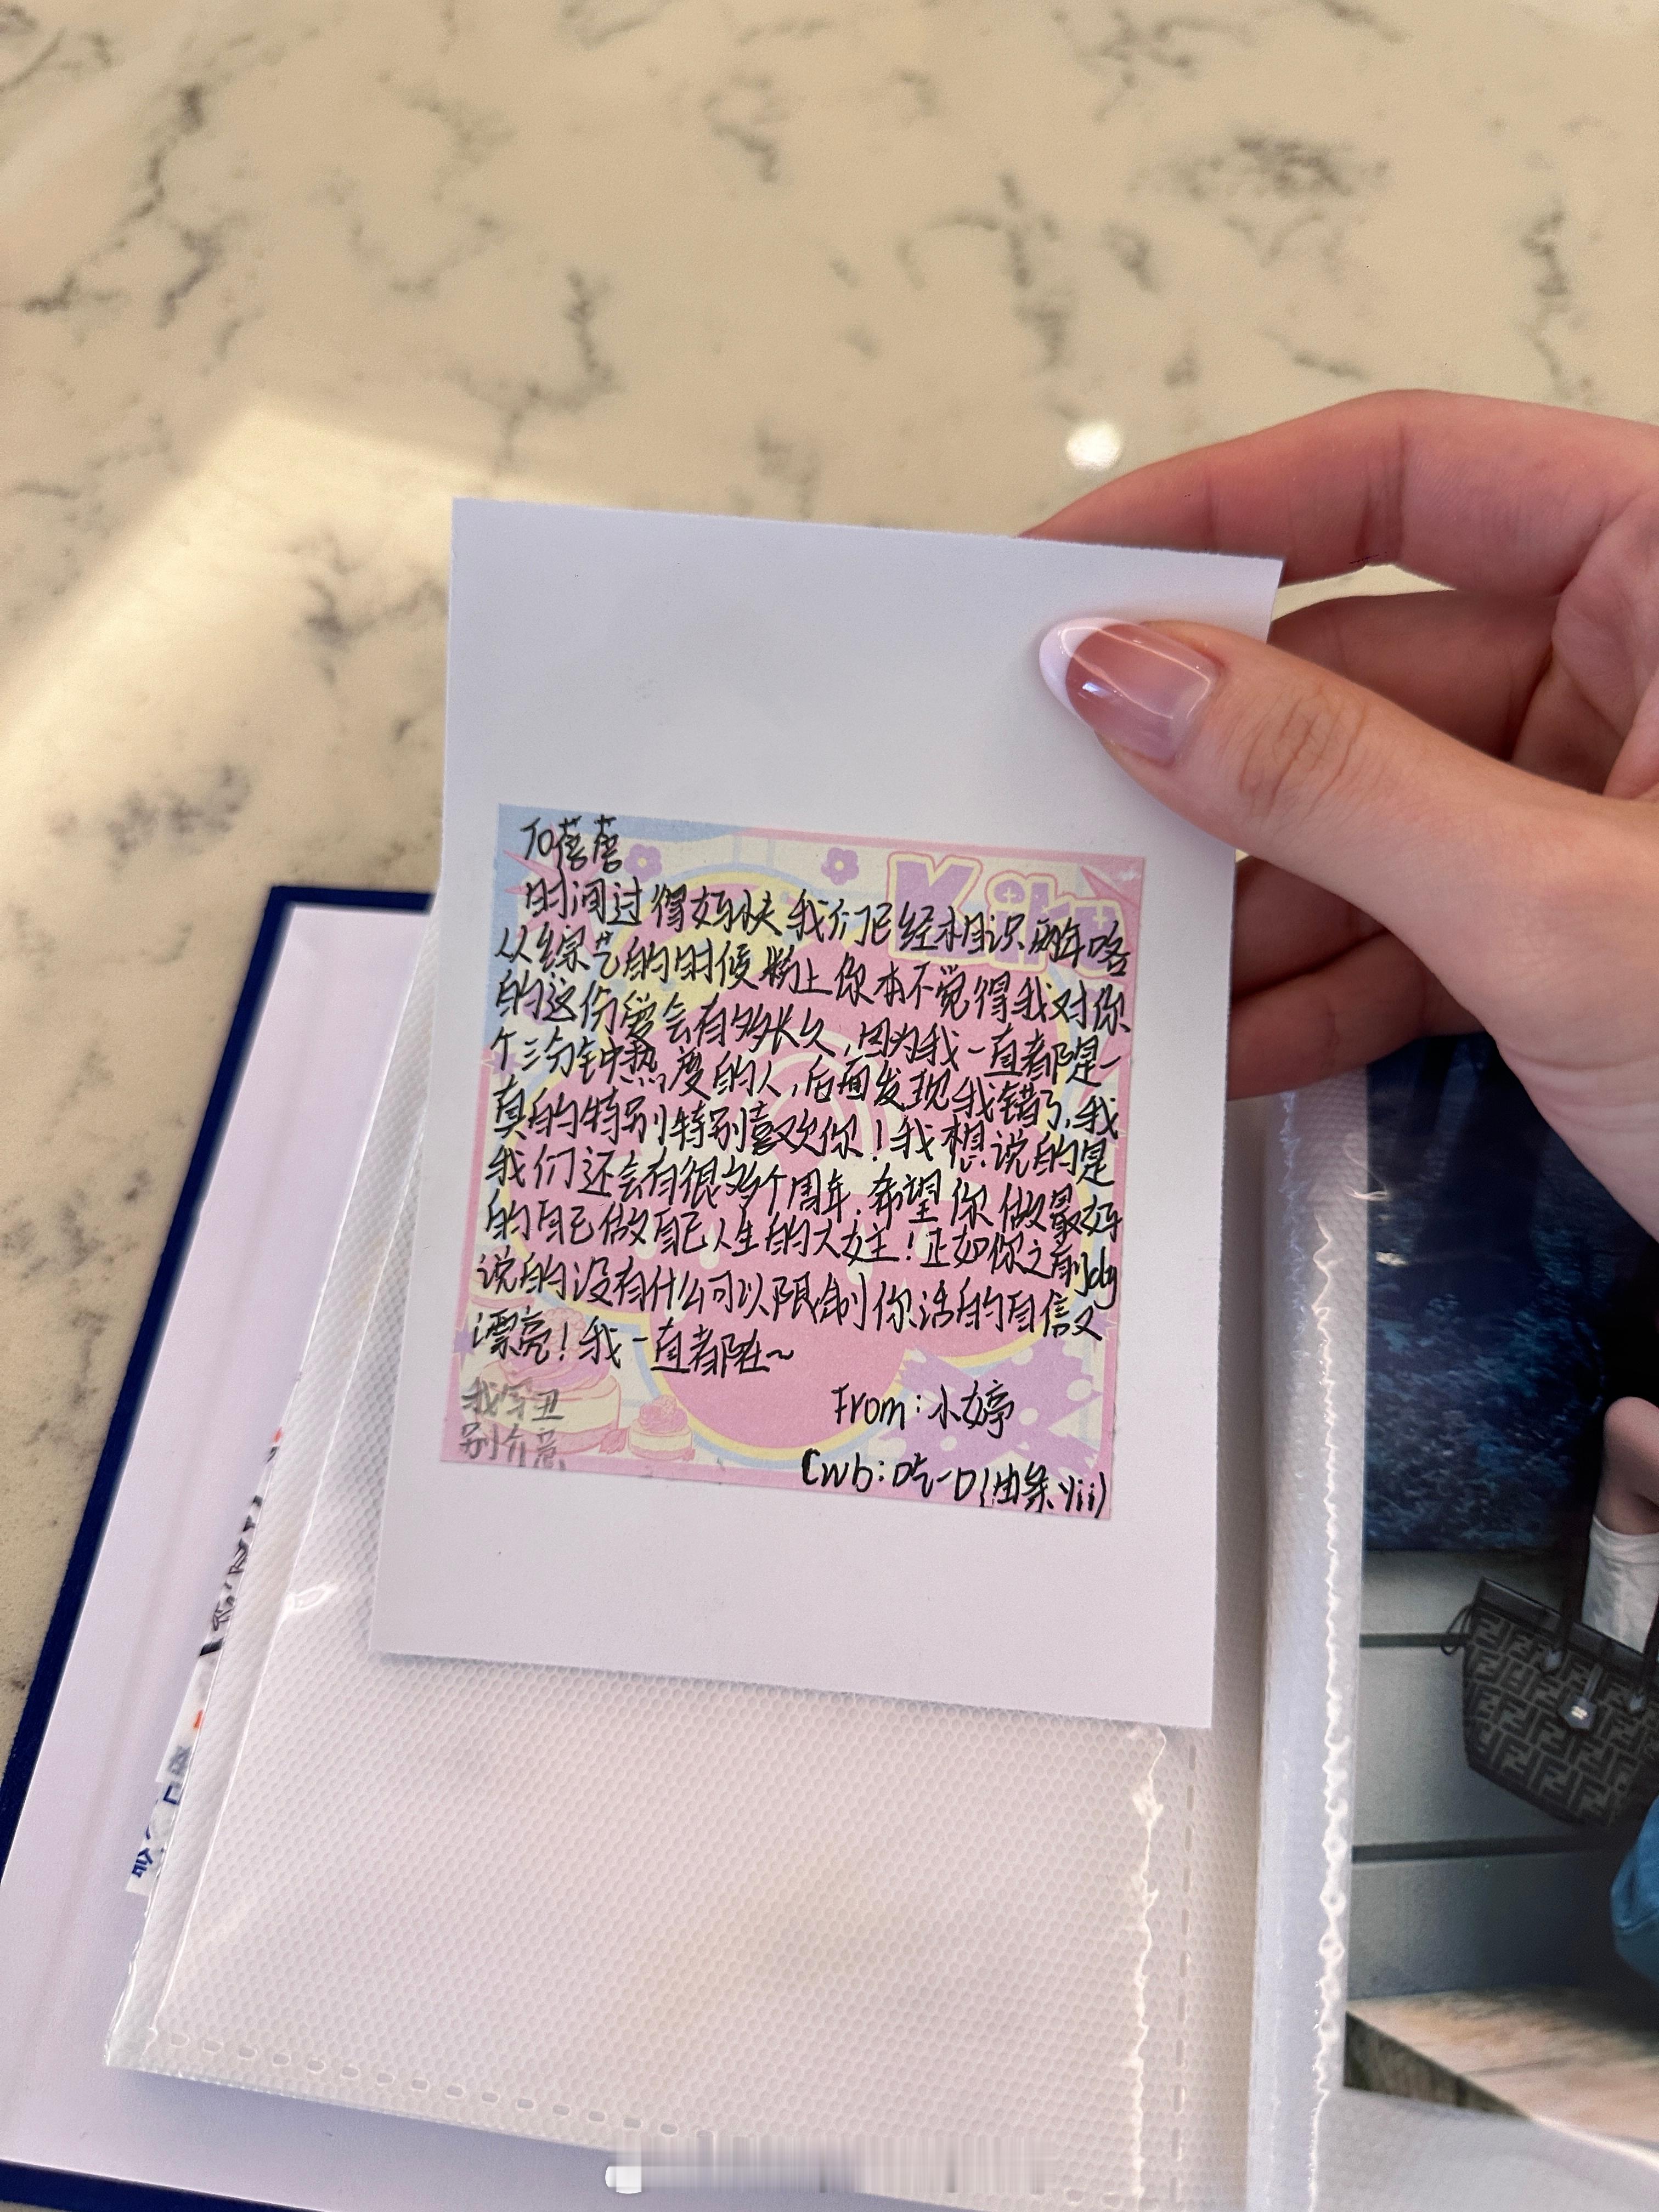 To蓓蓓
Kiku
时间过得好快我们已经相识两年咯
从综艺的时候粉上你本不觉得我对你
的这份爱会有多长久,因为我一直都是一
个三分钟热度的人,后面发现我错了,我
真的特别特别喜欢你!我想说的是
我们还会有很多个周年.希望你做最好
的自己做自己人生的大女主!正如你之前dy
说的没有什么可以限制你活的自信又
漂亮!我一直都在~
From:小婷
(wb:吃一口油条yii)
我字丑
别介意